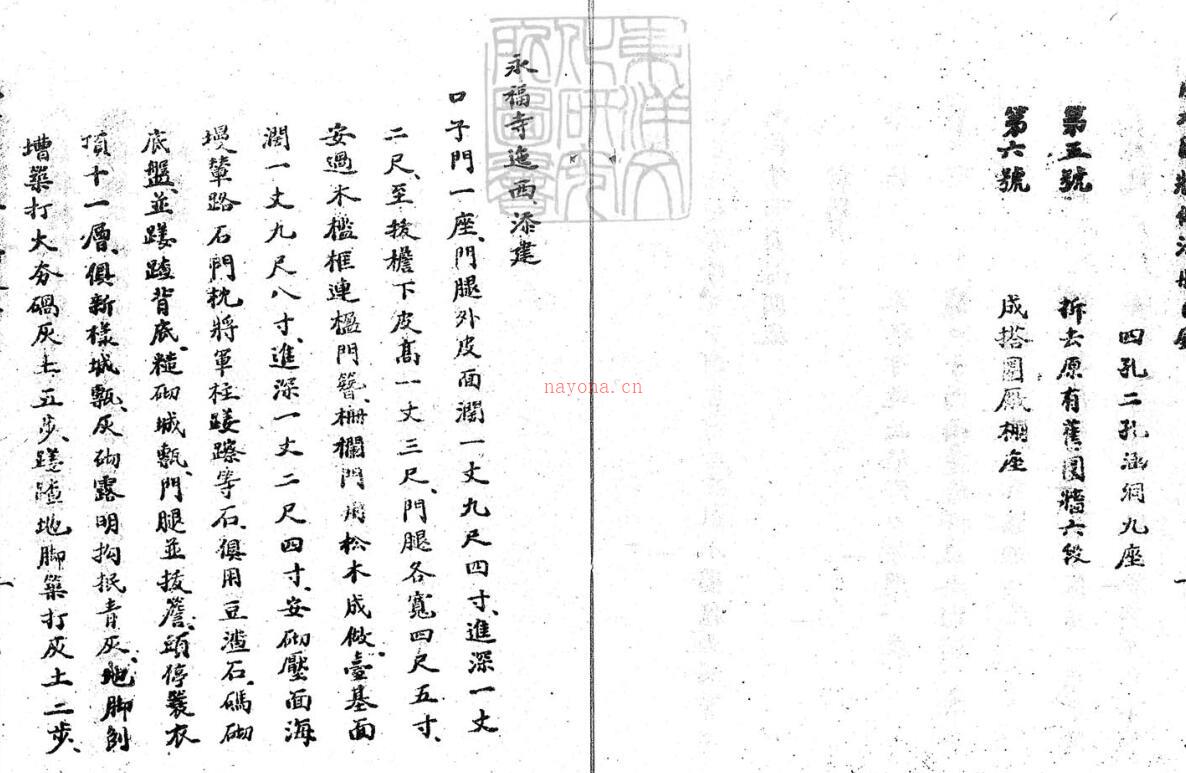 四孔二孔涵洞九座
第五號 拆去原有舊園牆六段
第六號 成搭圓厰棚座
永福寺迤西添建
口子門一座、門腿外皮面濶一丈九尺四寸、進深一丈
二尺、至拔檐下皮高一丈三尺、門腿各寬四尺五寸、
安過木檻框連楹門簪、柵欄門用松木成做、臺基面
濶一丈九尺八寸、進深一丈二尺四寸、安砌壓面海
墁輦路石門枕將軍柱䃀䃰等石、俱用豆渣石、碼砌
底盤、並䃀䃰背底、糙砌城甎、門腿並拔簷、頭停蓑衣
頂十一層、俱新樣城甎、灰砌露明抅抿青灰、地脚刨
槽築打大夯碢灰土五步、䃀䃰地脚築打灰土二步、
東洋文化研究所圖書
nayona.cn